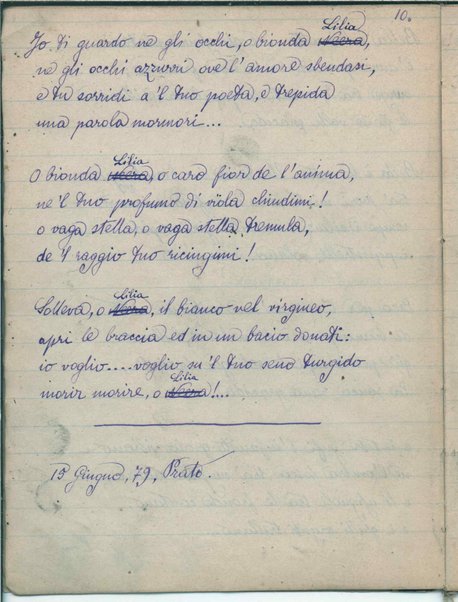 10.
Io ti guardo ne gli occhi, o bionda Lilia
ne gli occhi azzurri ove l'amore sbendasi,
e tu sorridi a 'l tuo poeta, e trepida
una parola mormori...
O bionda Lilia, o caro fior de l'anima,
ne 'l tuo profumo di viola chiudimi!
o vaga stella, o vaga stella tremula,
de 'l raggio tuo ricingimi!
Solleva, o Lilia, il bianco vel virgineo,
apri le braccia ed in un bacio donati:
io voglio.....voglio su 'l tuo seno turgido
morir morire, o Lilia!...
15 Giugno, 79, Prato.